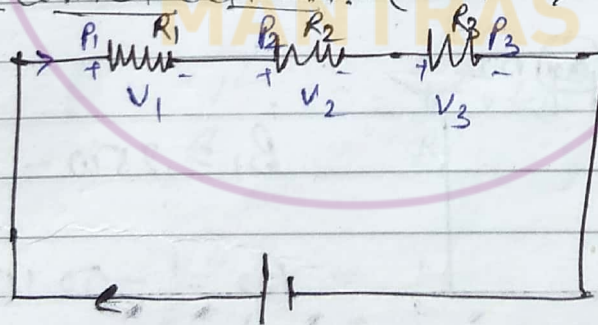 MANTRAS
P1 R1 P2 R2 R3 P3
+ - + - + -
V1 V2 V3